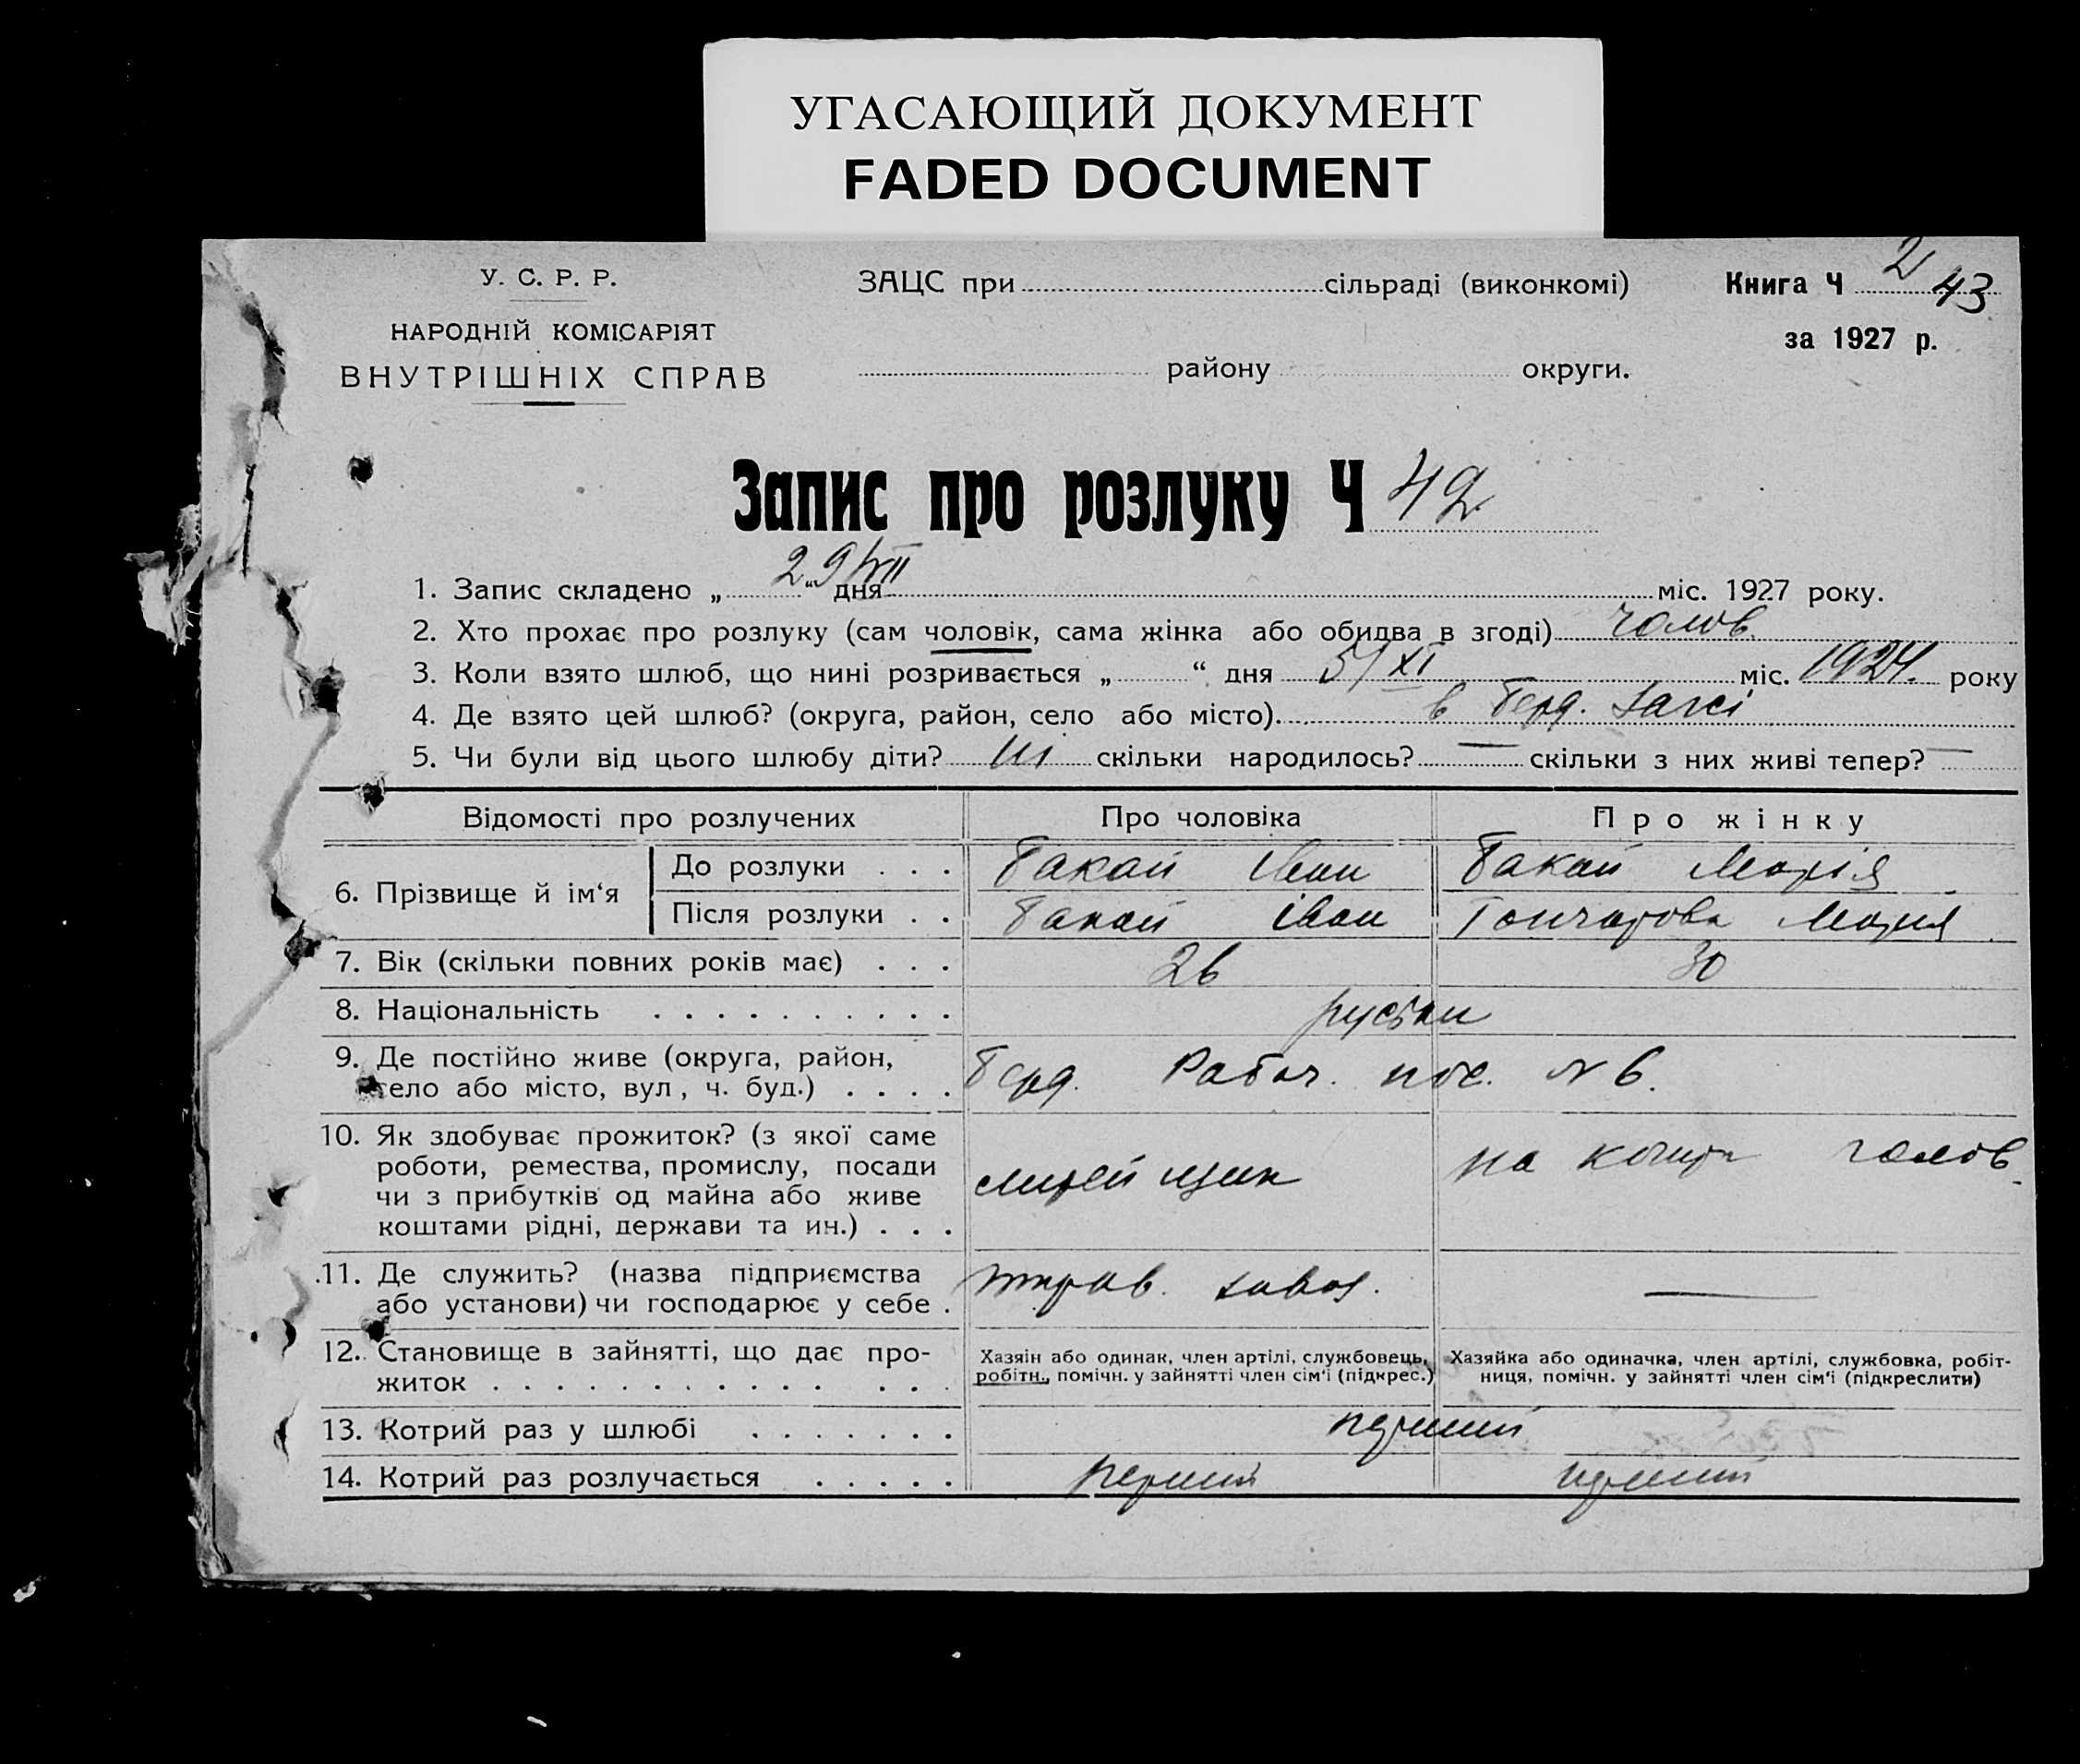 УГАСАЮЩИЙ ДОКУМЕНТ
FADED DOCUMENT
У. С. Р. Р.
НАРОДНІЙ КОМІСАРІЯТ
ВНУТРІШНІХ СПРАВ
ЗАЦС при сільраді (виконкомі)
району округи.
Книга Ч 2 43
за 1927 р.
Запис про розлуку Ч 42
1. Запис складено „ 29/VII “ дня міс. 1927 року.
2. Хто прохає про розлуку (сам чоловік, сама жінка або обидва в згоді) чолов.
3. Коли взято шлюб, що нині розривається „ “ дня 5/XI міс. 1924. року
4. Де взято цей шлюб? (округа, район, село або місто). в Берд. Загсі
5. Чи були від цього шлюбу діти? ні скільки народилось? — скільки з них живі тепер? —
Відомості про розлучених Про чоловіка Про жінку
6. Прізвище й ім‘я
До розлуки . . . Бакай Іван Бакай Марія
Після розлуки . . Бакай Іван Гончарова Мария
7. Вік (скільки повних років має) . . . 26 30
8. Національність . . . . . . . . . .
9. Де постійно живе (округа, район,
село або місто, вул, ч. буд.) . . . . Берд. Рабоч. пос. N 6.
10. Як здобуває прожиток? (з якої саме
роботи, ремества, промислу, посади
чи з прибутків од майна або живе
коштами рідні, держави та ин.) . . .
на кошти чолов.
11. Де служить? (назва підприємства
або установи) чи господарює у себе . завод. —
12. Становище в зайнятті, що дає про-
житок . . . . . . . . . . . . . .
Хазяін або одинак, член артілі, службовець,
робітн., помічн. у зайнятті член сім'ї (підкрес.)
Хазяйка або одиначка, член артілі, службовка, робіт-
ниця, помічн. у зайнятті член сім'ї (підкреслити)
13. Котрий раз у шлюбі . . . . . . . перший
14. Котрий раз розлучається . . . . . перший перший